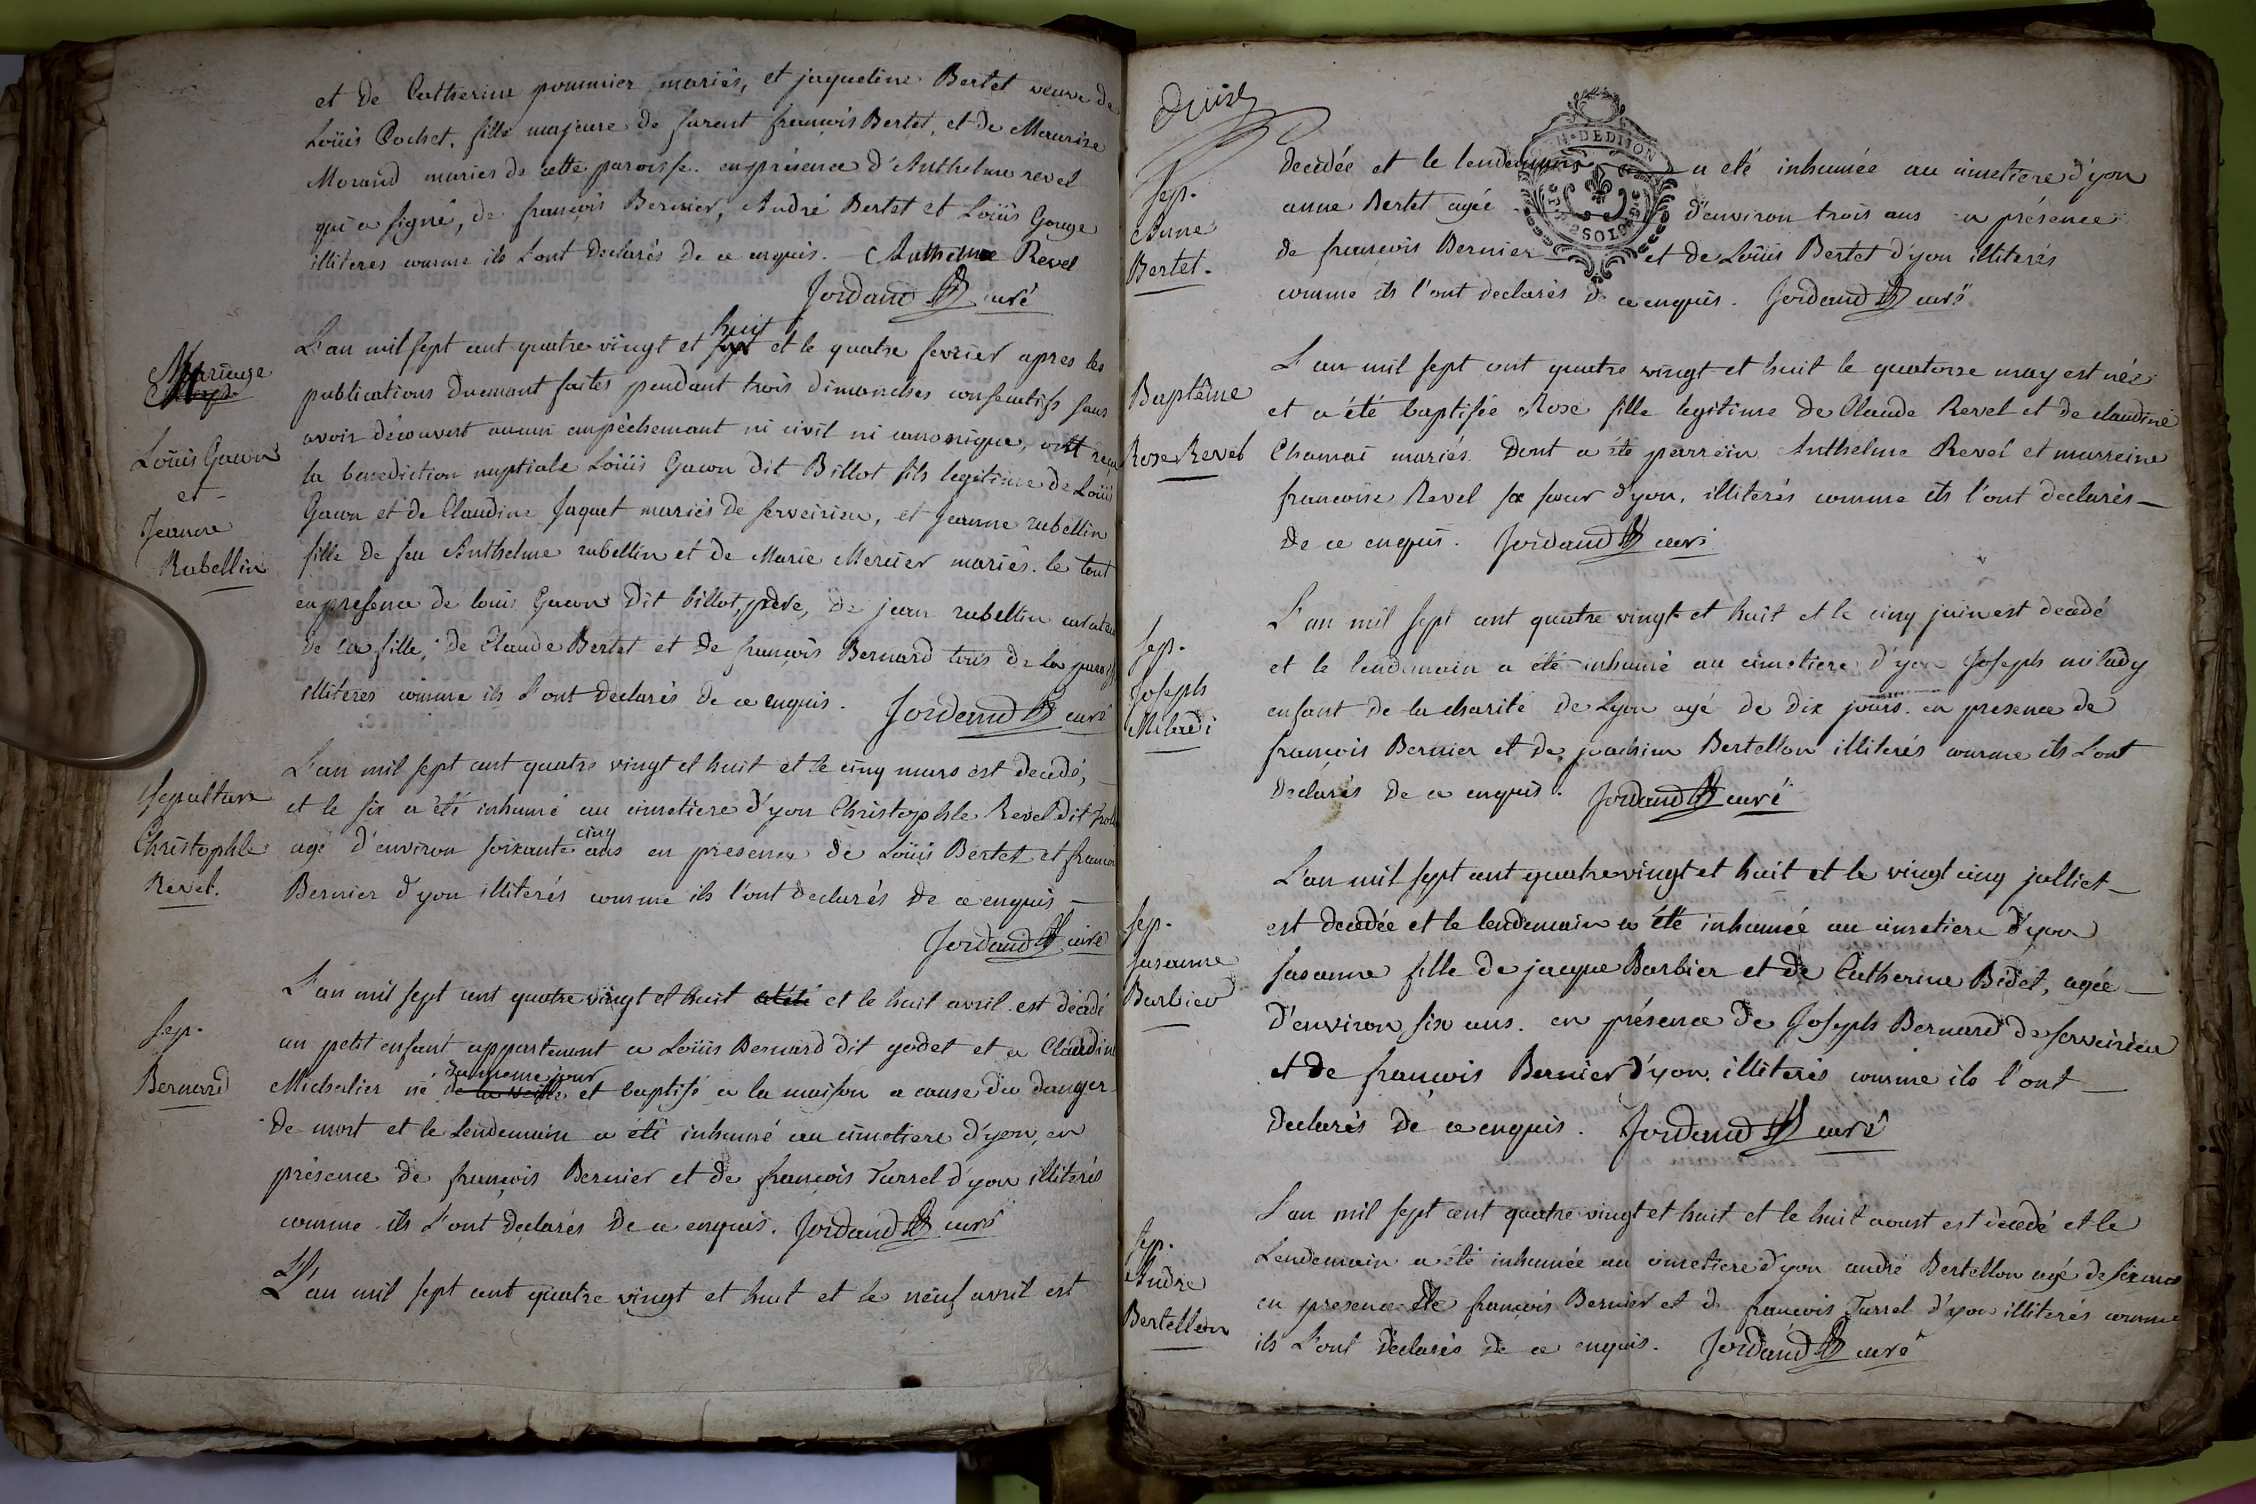 et de Catherine pommier mariés, et jaqueline Bertet veuve de
Loüis Pochet, fille majeure de furent françois Bertet, et de Maurise
Morand mariés de cette paroisse. en présence d'Anthelme revel
qui a signé, de françois Bernier, André Bertet et Loüis Gouge
illiteres comme ils l'ont declarés de ce enquis. Anthelme Revel
Jordand curé
Mariage
Loüis Gacon
et
Jeanne
Rubellin
L'an mil sept cent quatre vingt et huit et le quatre fevrier apres les
publications duemant faites pendant trois dimanches consecutifs sans
avoir découvert aucun empêchemant ni civil ni canonique, ont reçu
la benediction nuptiale Loüis Gacon dit Billot fils legitime de Loüis
Gacon et de Claudine Jaquet mariés de serveirieu, et Jeanne rubellin
fille de feu Anthelme rubellin et de Marie Mercier mariés. le tout
en presence de louis Gacon dit billot, père, de jean rubellin curateur
de la fille, de Claude Bertet et de françois Bernard tous de la paroisse
illiteres comme ils l'ont declarés de ce enquis. Jordand curé
Sepulture
Christophle
Revel.
L'an mil sept cent quatre vingt et huit et le cinq mars est decedé,
et le six a été inhumé au cimetiere d'yon Christophle Revel dit
agé d'environ soixante cinq ans en presence de Loüis Bertet et françois
Bernier d'yon illiterés comme ils l'ont declarés de ce enquis
Jordand curé
Sep.
Bernard
L'an mil sept cent quatre vingt et huit et le huit avril est décédé
un petit enfant appartenant a Loüis Bernard dit godet et a Claudine
Michalier né du meme jour et baptisé a la maison a cause du danger
de mort et le lendemain a été inhumé au cimetiere d'yon, en
présence de françois Bernier et de françois Turrel d'yon illiterés
comme ils l'ont declarés de ce enquis. Jordand curé
L'an mil sept cent quatre vingt et huit et le neuf avril est
Sep.
Anne
Bertet.
decedée et le lendemain a eté inhumée au cimetiere d'yon
anne Bertet agée d'environ trois ans a présence
de françois Bernier et de Loüis Bertet d'yon illiterés
comme ils l'ont declarés de ce enquis. Jordand curé
Baptême
Rose Revel
L'an mil sept cent quatre vingt et huit le quatorze may est née
et a été baptisée Rose fille legitime de Claude Revel et de claudine
Chamai mariés. Dont a été parrein Anthelme Revel et marreine
francoise Revel sa soeur d'yon, illiterés comme ils l'ont declarés
de ce enquis. Jordand curé
Sep.
Joseph
Miladi
L'an mil sept cent quatre vingt et huit et le cinq juin est decedé
et le lendemain a été inhumé au cimetiere d'yon Joseph milady
enfant de la charité de Lyon agé de dix jours. en presence de
françois Bernier et de joachim Bertellon illiterés comme ils l'ont
declarés de ce enquis. Jordand curé
Sep.
Susanne
Barbier
L'an mil sept cent quatre vingt et huit et le vingt cinq julliet
est decedée et le lendemain a été inhumée au cimetiere d'yon
Susanne fille de jacque Barbier et de Catherine Bidet, agée
d'environ six ans. en présence de Joseph Bernard de serveirieu
et de françois Bernier d'yon, illiterés comme ils l'ont
declarés de ce enquis. Jordand curé
Sep.
Andre
Bertellon
L'an mil sept cent quatre vingt et huit et le huit aoust est decedé et le
Lendemain a été inhumée au cimetiere d'yon andré Bertellon agé de six mois
en presence de françois Bernier et de françois Turrel d'yon illiterés comme
ils l'ont déclarés de ce enquis. Jordand curé